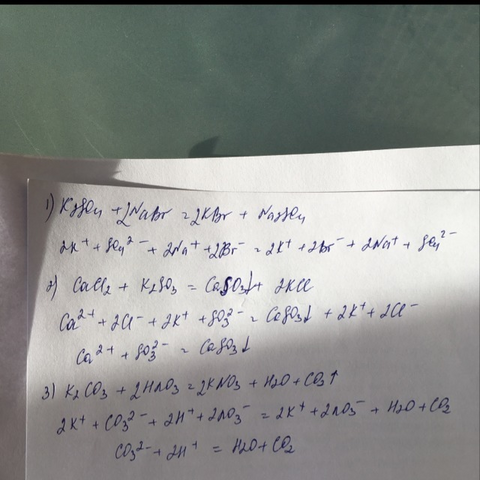 1) K₂SO₄ + 2NaBr = 2KBr + Na₂SO₄
2K⁺ + SO₄²⁻ + 2Na⁺ + 2Br⁻ = 2K⁺ + 2Br⁻ + 2Na⁺ + SO₄²⁻
2) CaCl₂ + K₂SO₃ = CaSO₃↓ + 2KCl
Ca²⁺ + 2Cl⁻ + 2K⁺ + SO₃²⁻ = CaSO₃↓ + 2K⁺ + 2Cl⁻
Ca²⁺ + SO₃²⁻ = CaSO₃↓
3) K₂CO₃ + 2HNO₃ = 2KNO₃ + H₂O + CO₂↑
2K⁺ + CO₃²⁻ + 2H⁺ + 2NO₃⁻ = 2K⁺ + 2NO₃⁻ + H₂O + CO₂
CO₃²⁻ + 2H⁺ = H₂O + CO₂